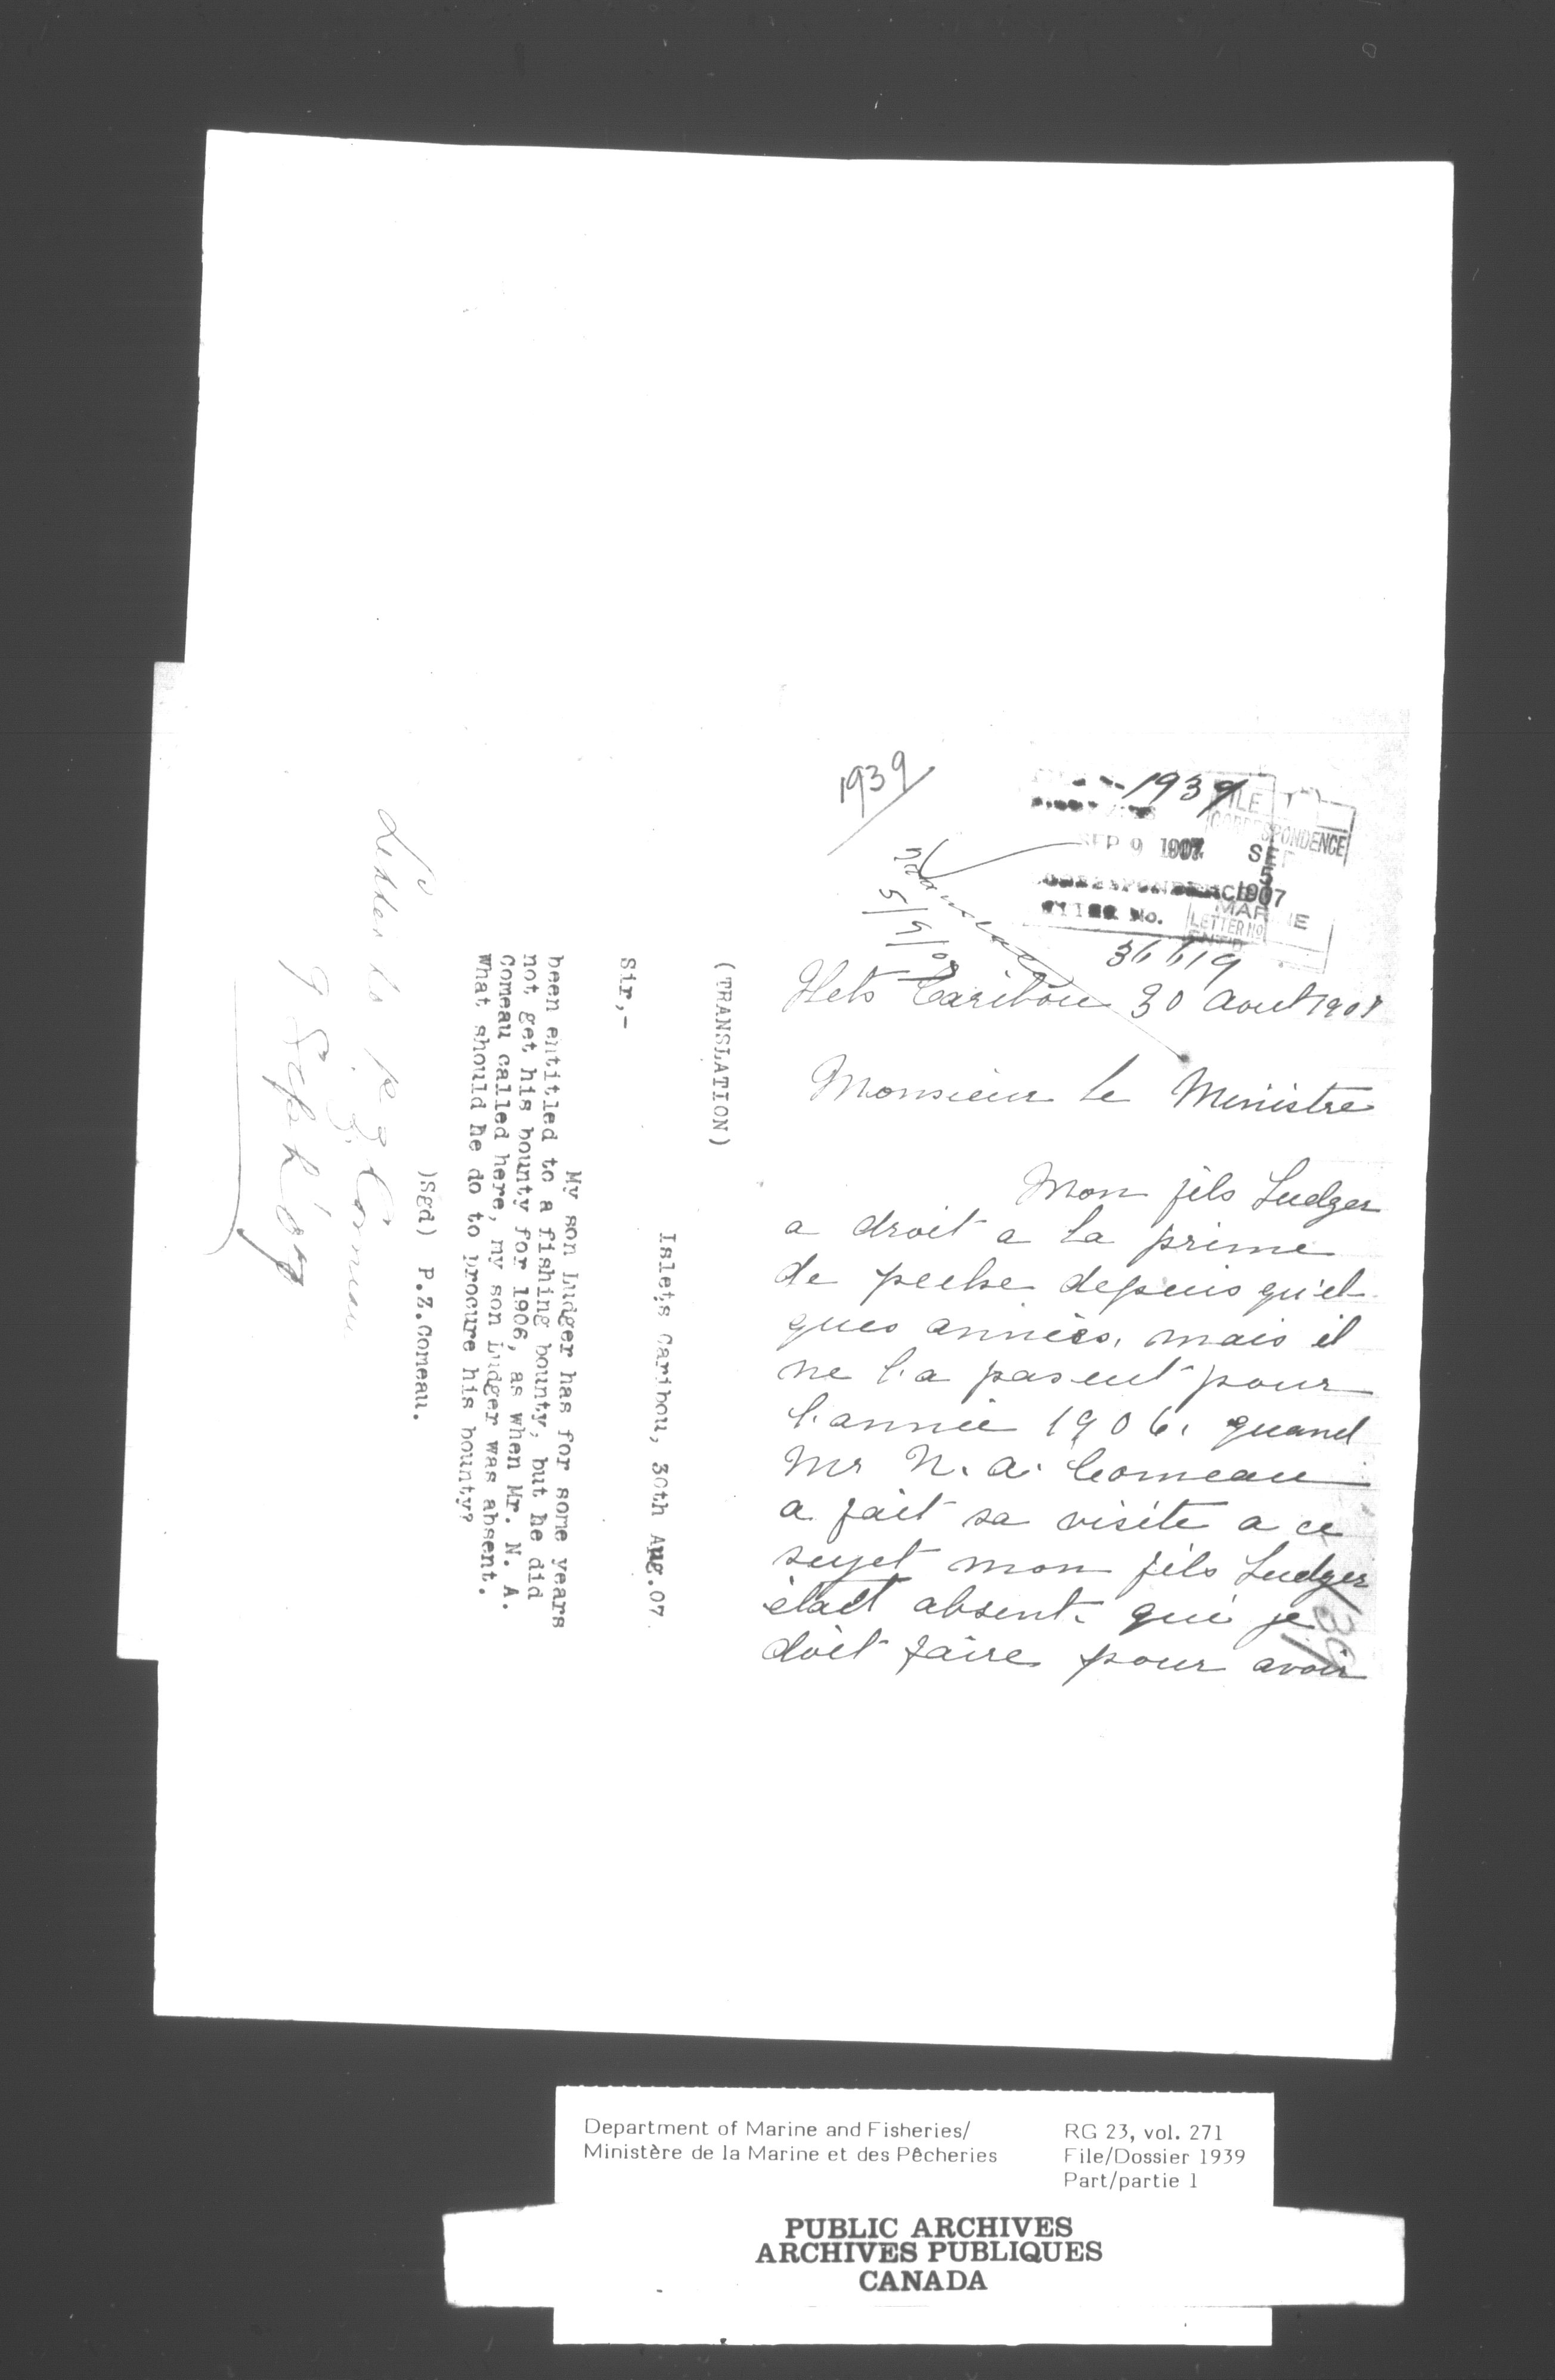 1939
1939
FILE
CORRESPONDENCE
SEP 9 1907
SEP
5
1907
MARINE
LETTER No
No.
36619
5/9/07
Ilets Caribou 30 Aout 1907
Monsieur le Ministre
Mon fils Ludger
a droit a la prime
de peche depuis qu'el
ques années, mais il
ne l'a pas eut pour
l'année 1906. quand
Mr N. A. Comeau
a fait sa visite a ce
sujet mon fils Ludger
était absent. que je
doit faire pour avoir
139
(TRANSLATION)
Islets Caribou, 30th Aug.07.
Sir,-
My son Ludger has for some years
been entitled to a fishing bounty, but he did
not get his bounty for 1906, as when Mr. N. A.
Comeau called here, my son Ludger was absent.
What should he do to procure his bounty?
)Sgd) P.Z.Comeau.
Letter to P. Z. Comeau
9 Sept '07
Department of Marine and Fisheries/
Ministère de la Marine et des Pêcheries
RG 23, vol. 271
File/Dossier 1939
Part/partie 1
PUBLIC ARCHIVES
ARCHIVES PUBLIQUES
CANADA